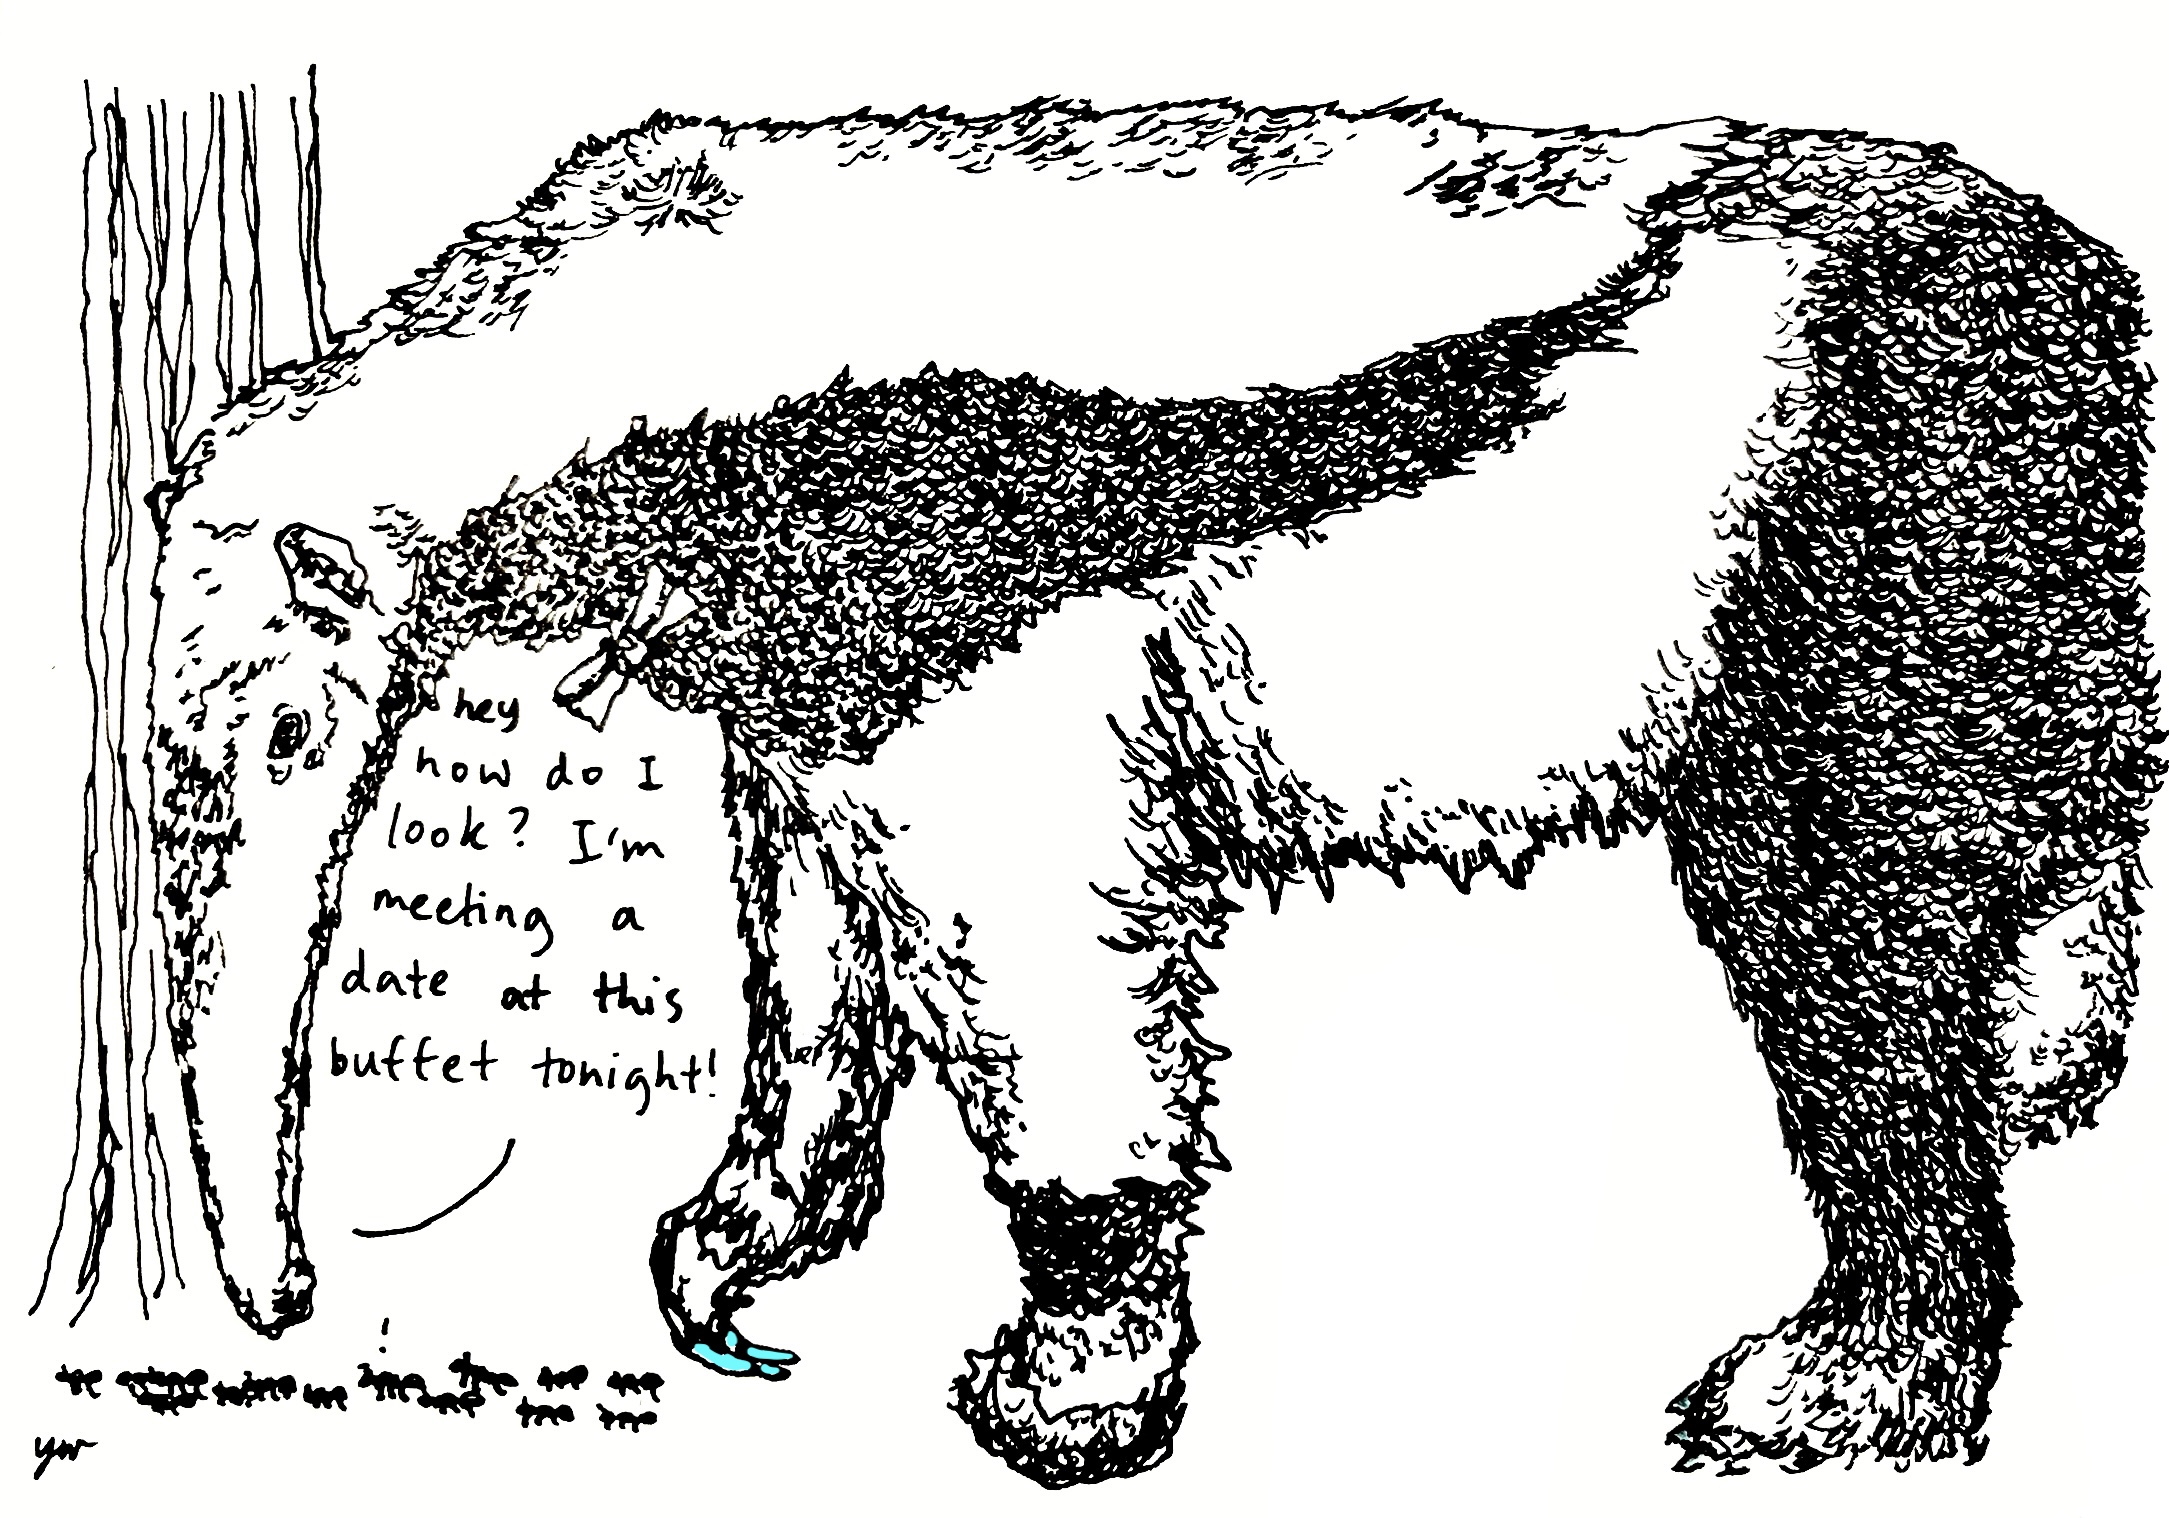 hey
how do I
look? I'm
meeting a
date at this
buffet tonight!
!
yw